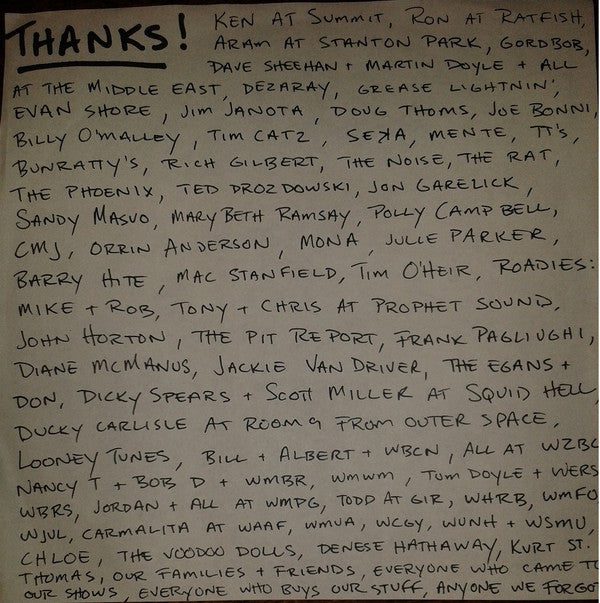 THANKS! KEN AT SUMMIT, RON AT RATFISH,
ARAM AT STANTON PARK, GORDBOB,
DAVE SHEEHAN + MARTIN DOYLE + ALL
AT THE MIDDLE EAST, DEZARAY, GREASE LIGHTNIN',
EVAN SHORE, JIM JANOTA, DOUG THOMS, JOE BONNI,
BILLY O'MALLEY, TIM CATZ, SEKA, MENTE, TT'S,
BUNRATTY'S, RICH GILBERT, THE NOISE, THE RAT,
THE PHOENIX, TED DROZDOWSKI, JON GARELICK,
SANDY MASUO, MARY BETH RAMSAY, POLLY CAMPBELL,
CMJ, ORRIN ANDERSON, MONA, JULIE PARKER,
BARRY HITE, MAC STANFIELD, TIM O'HEIR, ROADIES:
MIKE + ROB, TONY + CHRIS AT PROPHET SOUND,
JOHN HORTON, THE PIT REPORT, FRANK PAGLIUGHI,
DIANE MCMANUS, JACKIE VAN DRIVER, THE EGANS +
DON, DICKY SPEARS + SCOTT MILLER AT SQUID HELL,
DUCKY CARLISLE AT ROOM 9 FROM OUTER SPACE,
LOONEY TUNES, BILL + ALBERT + WBCN, ALL AT WZBC
NANCY T + BOB D + WMBR, WMWM, TOM DOYLE + WERS
WBRS, JORDAN + ALL AT WMPG, TODD AT GIR, WHRB, WMFO
WJUL, CARMALITA AT WAAF, WMUA, WCGY, WUNH + WSMU,
CHLOE, THE VOODOO DOLLS, DENESE HATHAWAY, KURT ST.
THOMAS, OUR FAMILIES + FRIENDS, EVERYONE WHO CAME TO
OUR SHOWS, EVERYONE WHO BUYS OUR STUFF, ANYONE WE FORGO